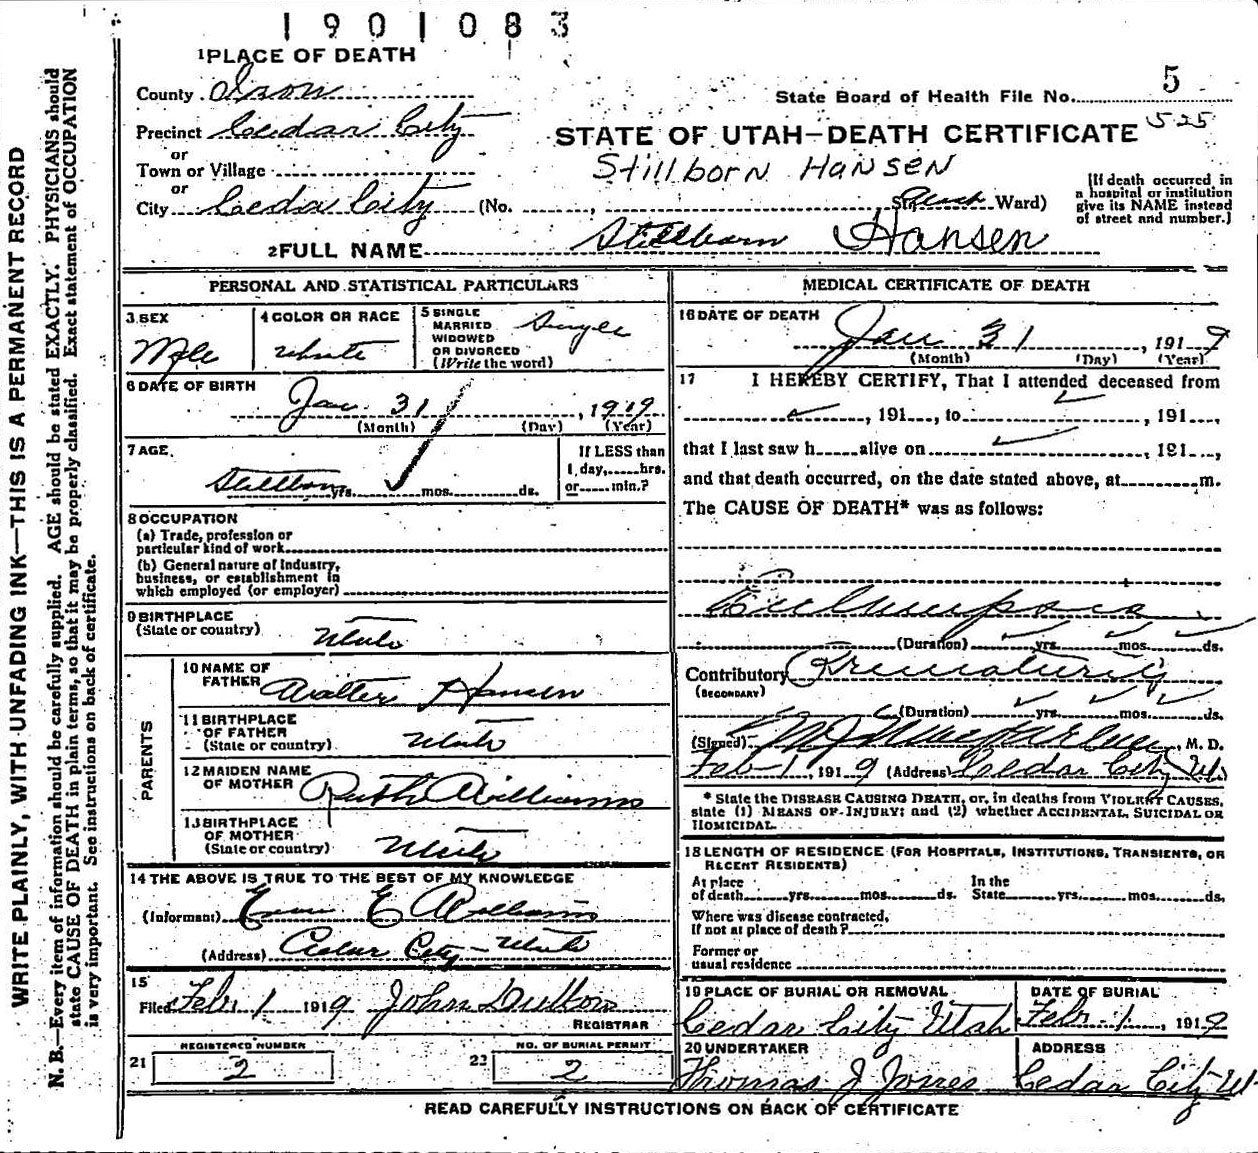 1901083
1 PLACE OF DEATH
County Iron
State Board of Health File No. 5
Precinct Cedar City
525
STATE OF UTAH—DEATH CERTIFICATE
or
Town or Village
Stillborn Hansen
or
City Cedar City (No. , St. Ward)
[If death occurred in
a hospital or institution
give its NAME instead
of street and number.]
2 FULL NAME Stillborn Hansen
PERSONAL AND STATISTICAL PARTICULARS
3 SEX
Male
4 COLOR OR RACE
White
5 SINGLE
MARRIED
WIDOWED
OR DIVORCED
(Write the word)
Single
6 DATE OF BIRTH
Jan 31, 1919
(Month) (Day) (Year)
7 AGE
Stillborn yrs. mos. ds.
If LESS than
1 day, hrs.
or min.?
8 OCCUPATION
(a) Trade, profession or
particular kind of work
(b) General nature of industry,
business, or establishment in
which employed (or employer)
9 BIRTHPLACE
(State or country) Utah
PARENTS
10 NAME OF
FATHER Walter Hansen
11 BIRTHPLACE
OF FATHER
(State or country) Utah
12 MAIDEN NAME
OF MOTHER Ruth Williams
13 BIRTHPLACE
OF MOTHER
(State or country) Utah
14 THE ABOVE IS TRUE TO THE BEST OF MY KNOWLEDGE
(Informant) E Williams
(Address) Cedar City Utah
15
Filed Feb 1 1919 John
REGISTRAR
REGISTERED NUMBER
21 2
NO. OF BURIAL PERMIT
22 2
MEDICAL CERTIFICATE OF DEATH
16 DATE OF DEATH
Jan 31, 1919
(Month) (Day) (Year)
17 I HEREBY CERTIFY, That I attended deceased from
, 191 , to , 191 ,
that I last saw h alive on , 191 ,
and that death occurred, on the date stated above, at m.
The CAUSE OF DEATH* was as follows:
(Duration) yrs. mos. ds.
Contributory Prematurity
(SECONDARY)
(Duration) yrs. mos. ds.
(Signed) Macfarlane, M. D.
Feb 1, 1919 (Address) Cedar City Ut
* State the DISEASE CAUSING DEATH, or, in deaths from VIOLENT CAUSES,
state (1) MEANS OF INJURY; and (2) whether ACCIDENTAL, SUICIDAL OR
HOMICIDAL.
18 LENGTH OF RESIDENCE (FOR HOSPITALS, INSTITUTIONS, TRANSIENTS, OR
RECENT RESIDENTS)
At place In the
of death yrs. mos. ds. State yrs. mos. ds.
Where was disease contracted,
If not at place of death?
Former or
usual residence
19 PLACE OF BURIAL OR REMOVAL
Cedar City Utah
DATE OF BURIAL
Feb 1, 1919
20 UNDERTAKER
Thomas J Jones
ADDRESS
Cedar City U
READ CAREFULLY INSTRUCTIONS ON BACK OF CERTIFICATE
WRITE PLAINLY, WITH UNFADING INK—THIS IS A PERMANENT RECORD
N. B.—Every item of information should be carefully supplied. AGE should be stated EXACTLY. PHYSICIANS should
state CAUSE OF DEATH in plain terms, so that it may be properly classified. Exact statement of OCCUPATION
is very important. See instructions on back of certificate.